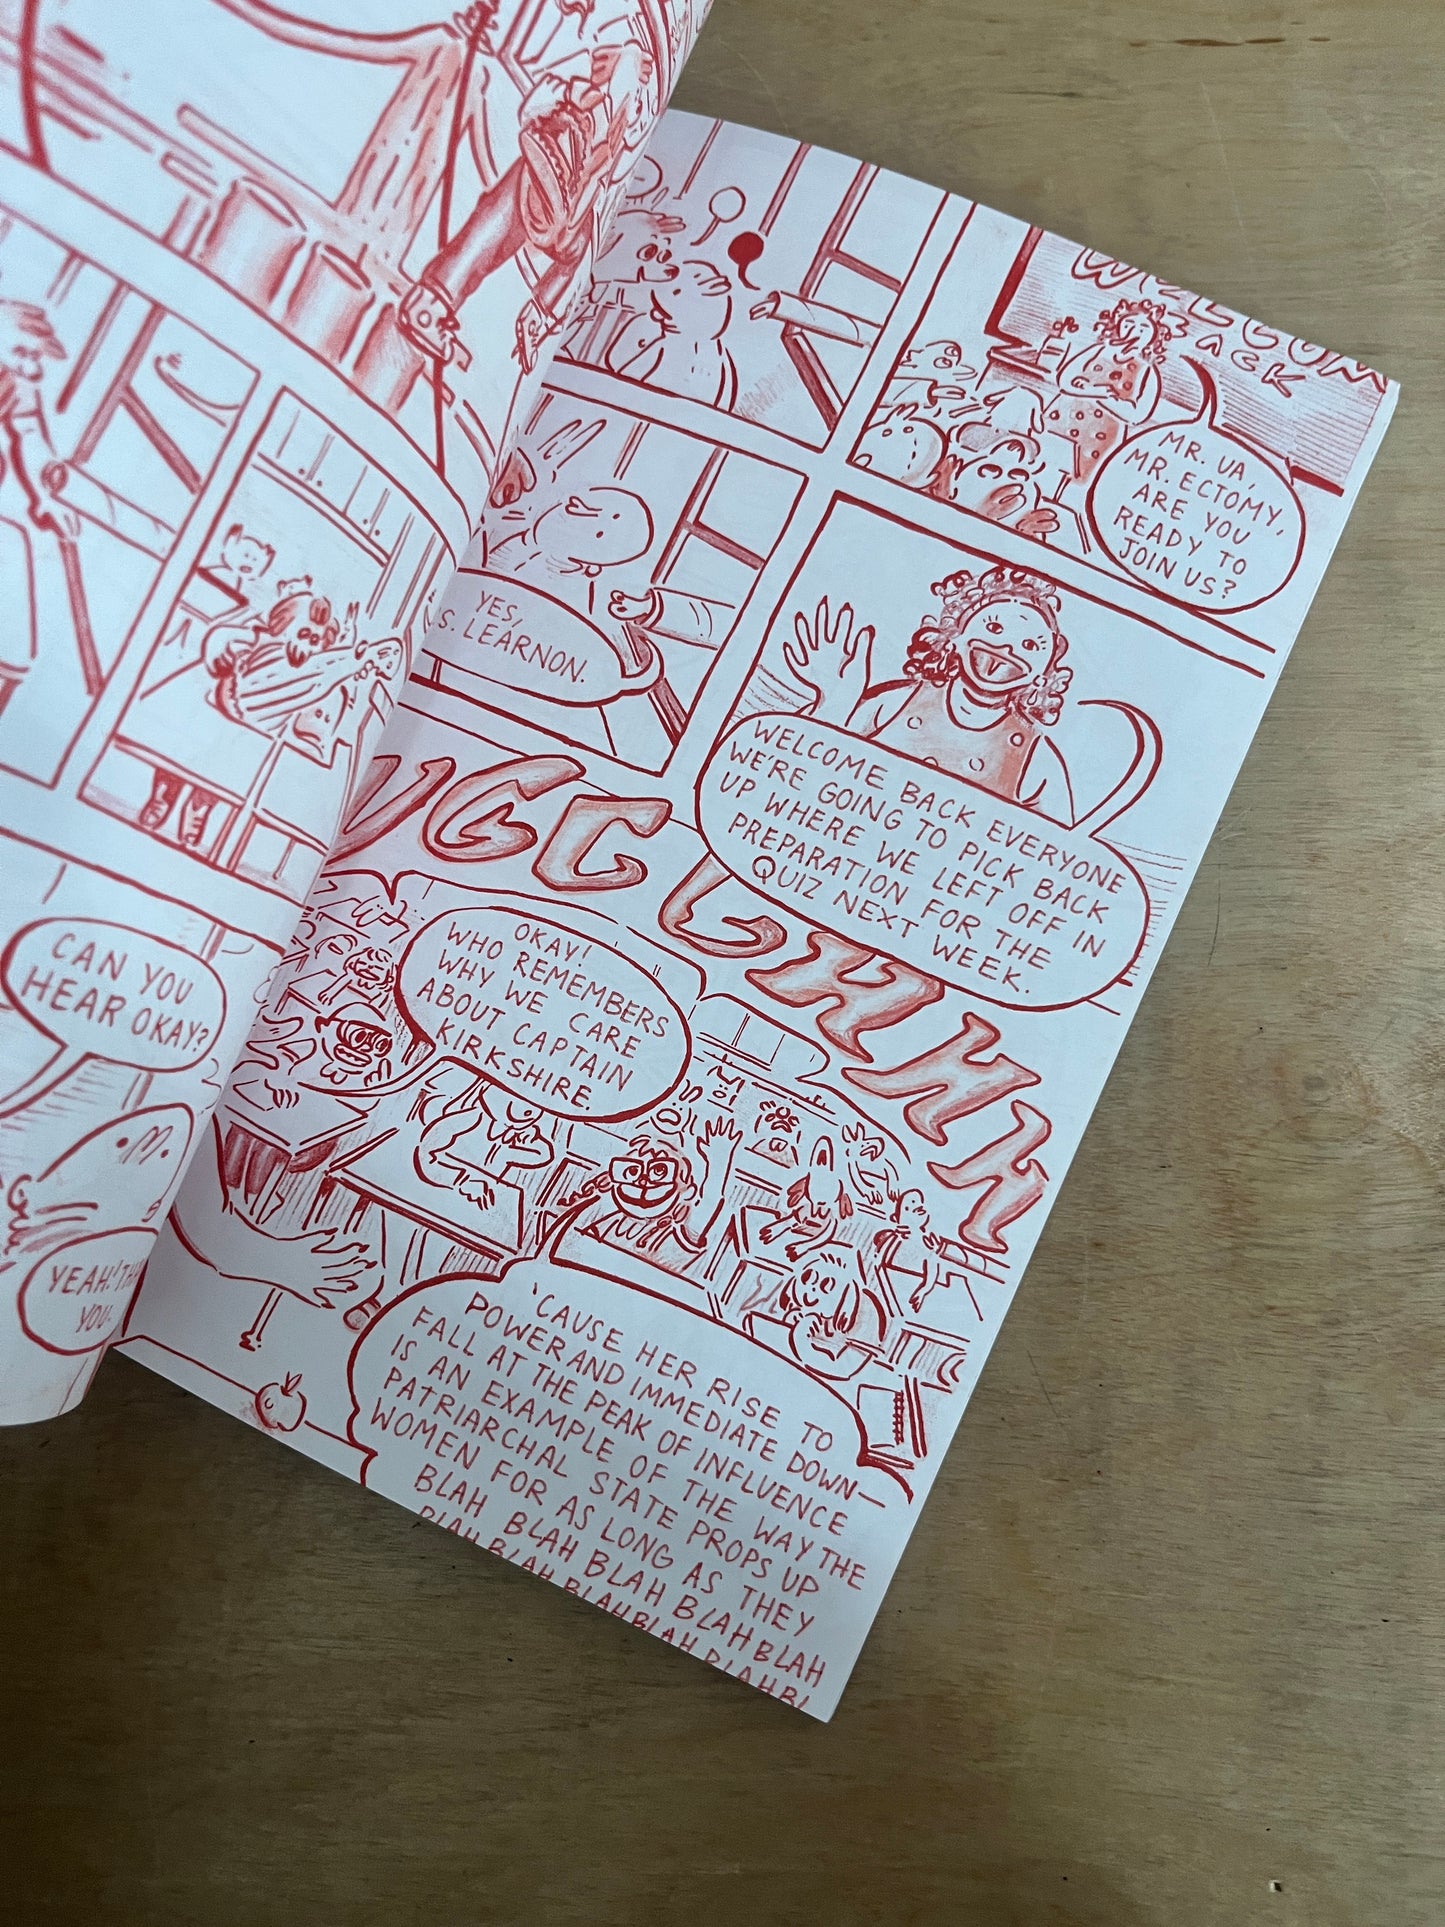 CAN YOU
HEAR OKAY?
YEAH! THA
YOU.
WELCOM
BACK
MR. UA,
MR. ECTOMY,
ARE YOU
READY TO
JOIN US?
YES,
S. LEARNON.
WELCOME BACK EVERYONE
WE'RE GOING TO PICK BACK
UP WHERE WE LEFT OFF IN
PREPARATION FOR THE
QUIZ NEXT WEEK.
OKAY!
WHO REMEMBERS
WHY WE CARE
ABOUT CAPTAIN
KIRKSHIRE.
'CAUSE HER RISE TO
POWER AND IMMEDIATE DOWN—
FALL AT THE PEAK OF INFLUENCE
IS AN EXAMPLE OF THE WAY THE
PATRIARCHAL STATE PROPS UP
WOMEN FOR AS LONG AS THEY
BLAH BLAH BLAH BLAH BLAH
BLAH BLAH BLAH BLAH BLAH BL